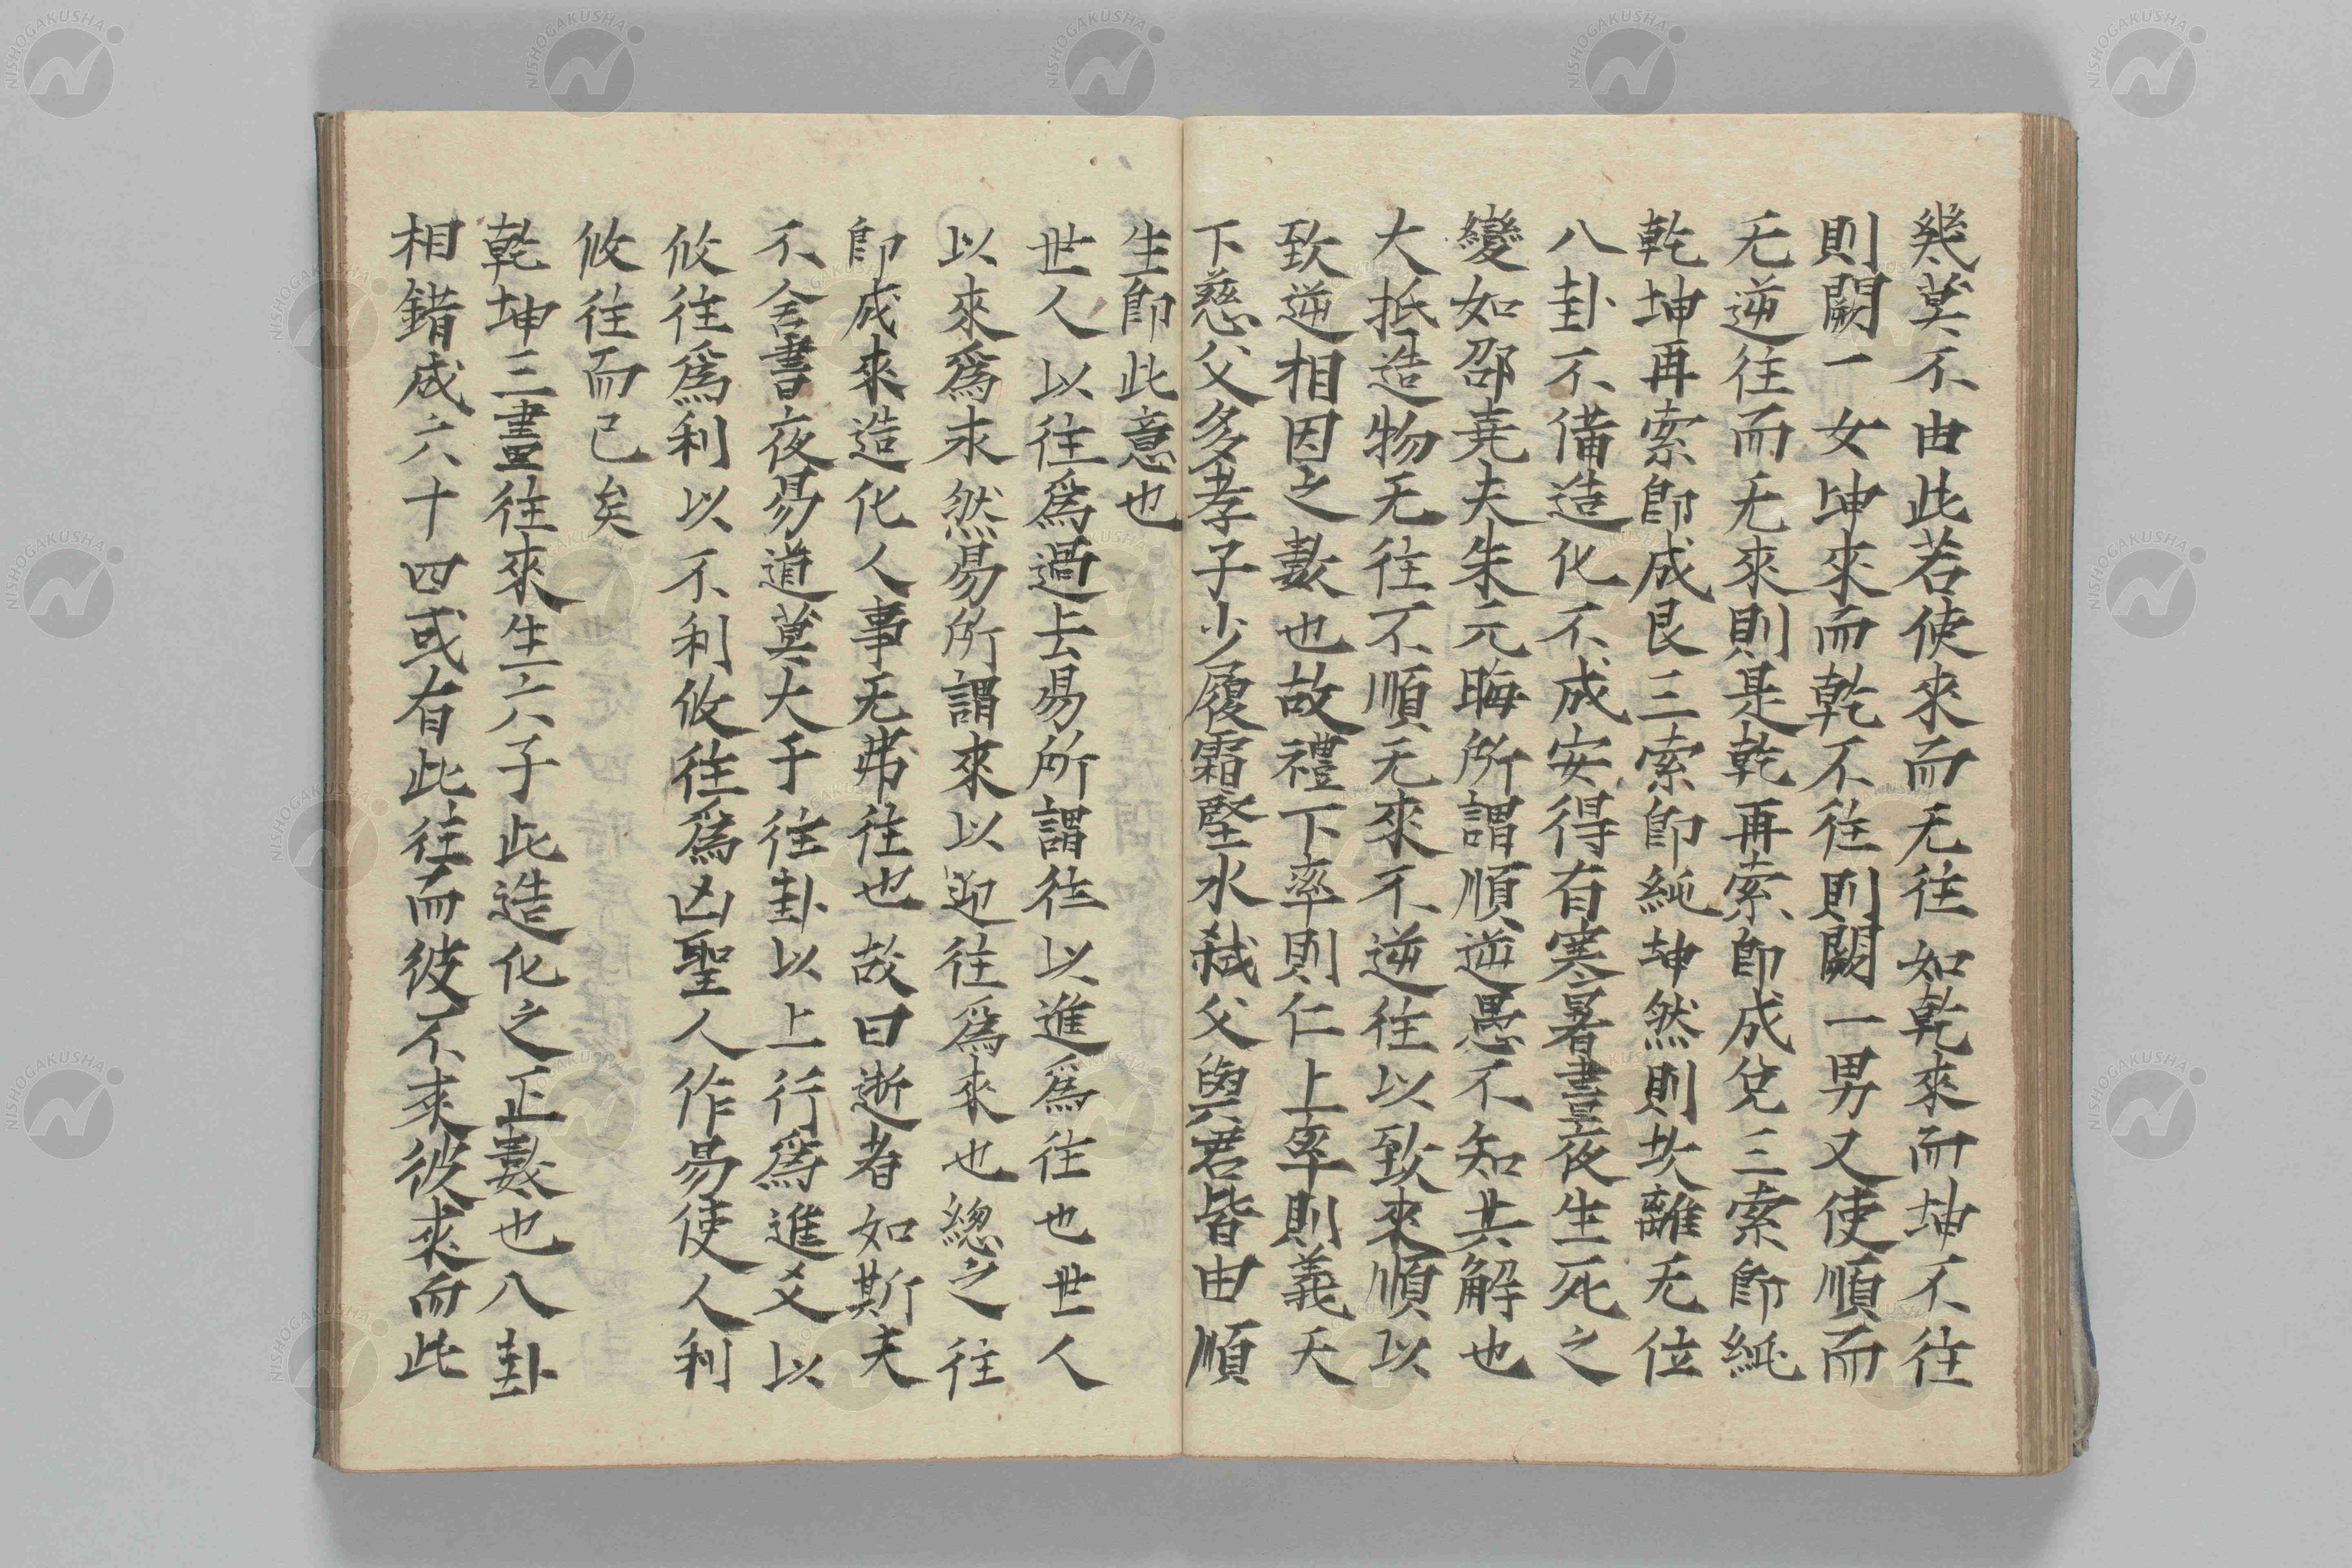 幾莫不由此若使來而无往如乾來而坤不往
則闕一女坤來而乾不往則闕一男又使順而
无逆往而无來則是乾再索卽成兌三索卽純
乾坤再索卽成艮三索卽純坤然則坎離无位
八卦不備造化不成安得有寒暑晝夜生死之
變如邵堯夫朱元晦所謂順逆愚不知其解也
大抵造物无往不順无來不逆往以致來順以
致逆相因之數也故禮下率則仁上率則義天
下慈父多孝子少履霜堅氷弑父與君皆由順
生卽此意也
世人以往爲過去易所謂往以進爲往也世人
以來爲未然易所謂來以迎往爲來也總之往
卽成來造化人事无弗往也故曰逝者如斯夫
不舍晝夜易道莫大于往卦以上行爲進爻以
攸往爲利以不利攸往爲凶聖人作易使人利
攸往而已矣
乾坤三畫往來生六子此造化之正數也八卦
相錯成六十四或有此往而彼不來彼來而此
NISHOGAKUSHA